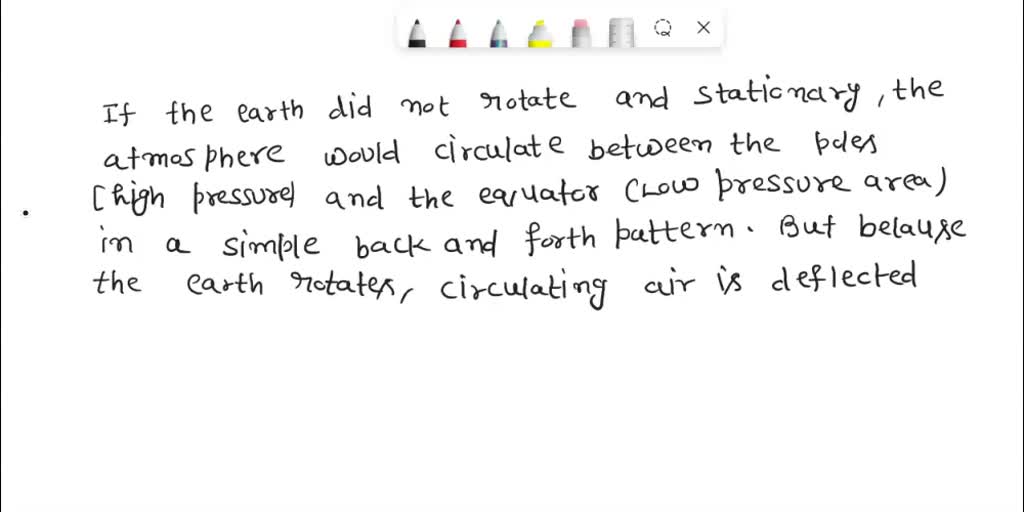 If the earth did not rotate and stationary, the
atmosphere would circulate between the poles
[high pressure) and the equator (Low pressure area)
in a simple back and forth pattern. But because
the earth rotates, circulating air is deflected